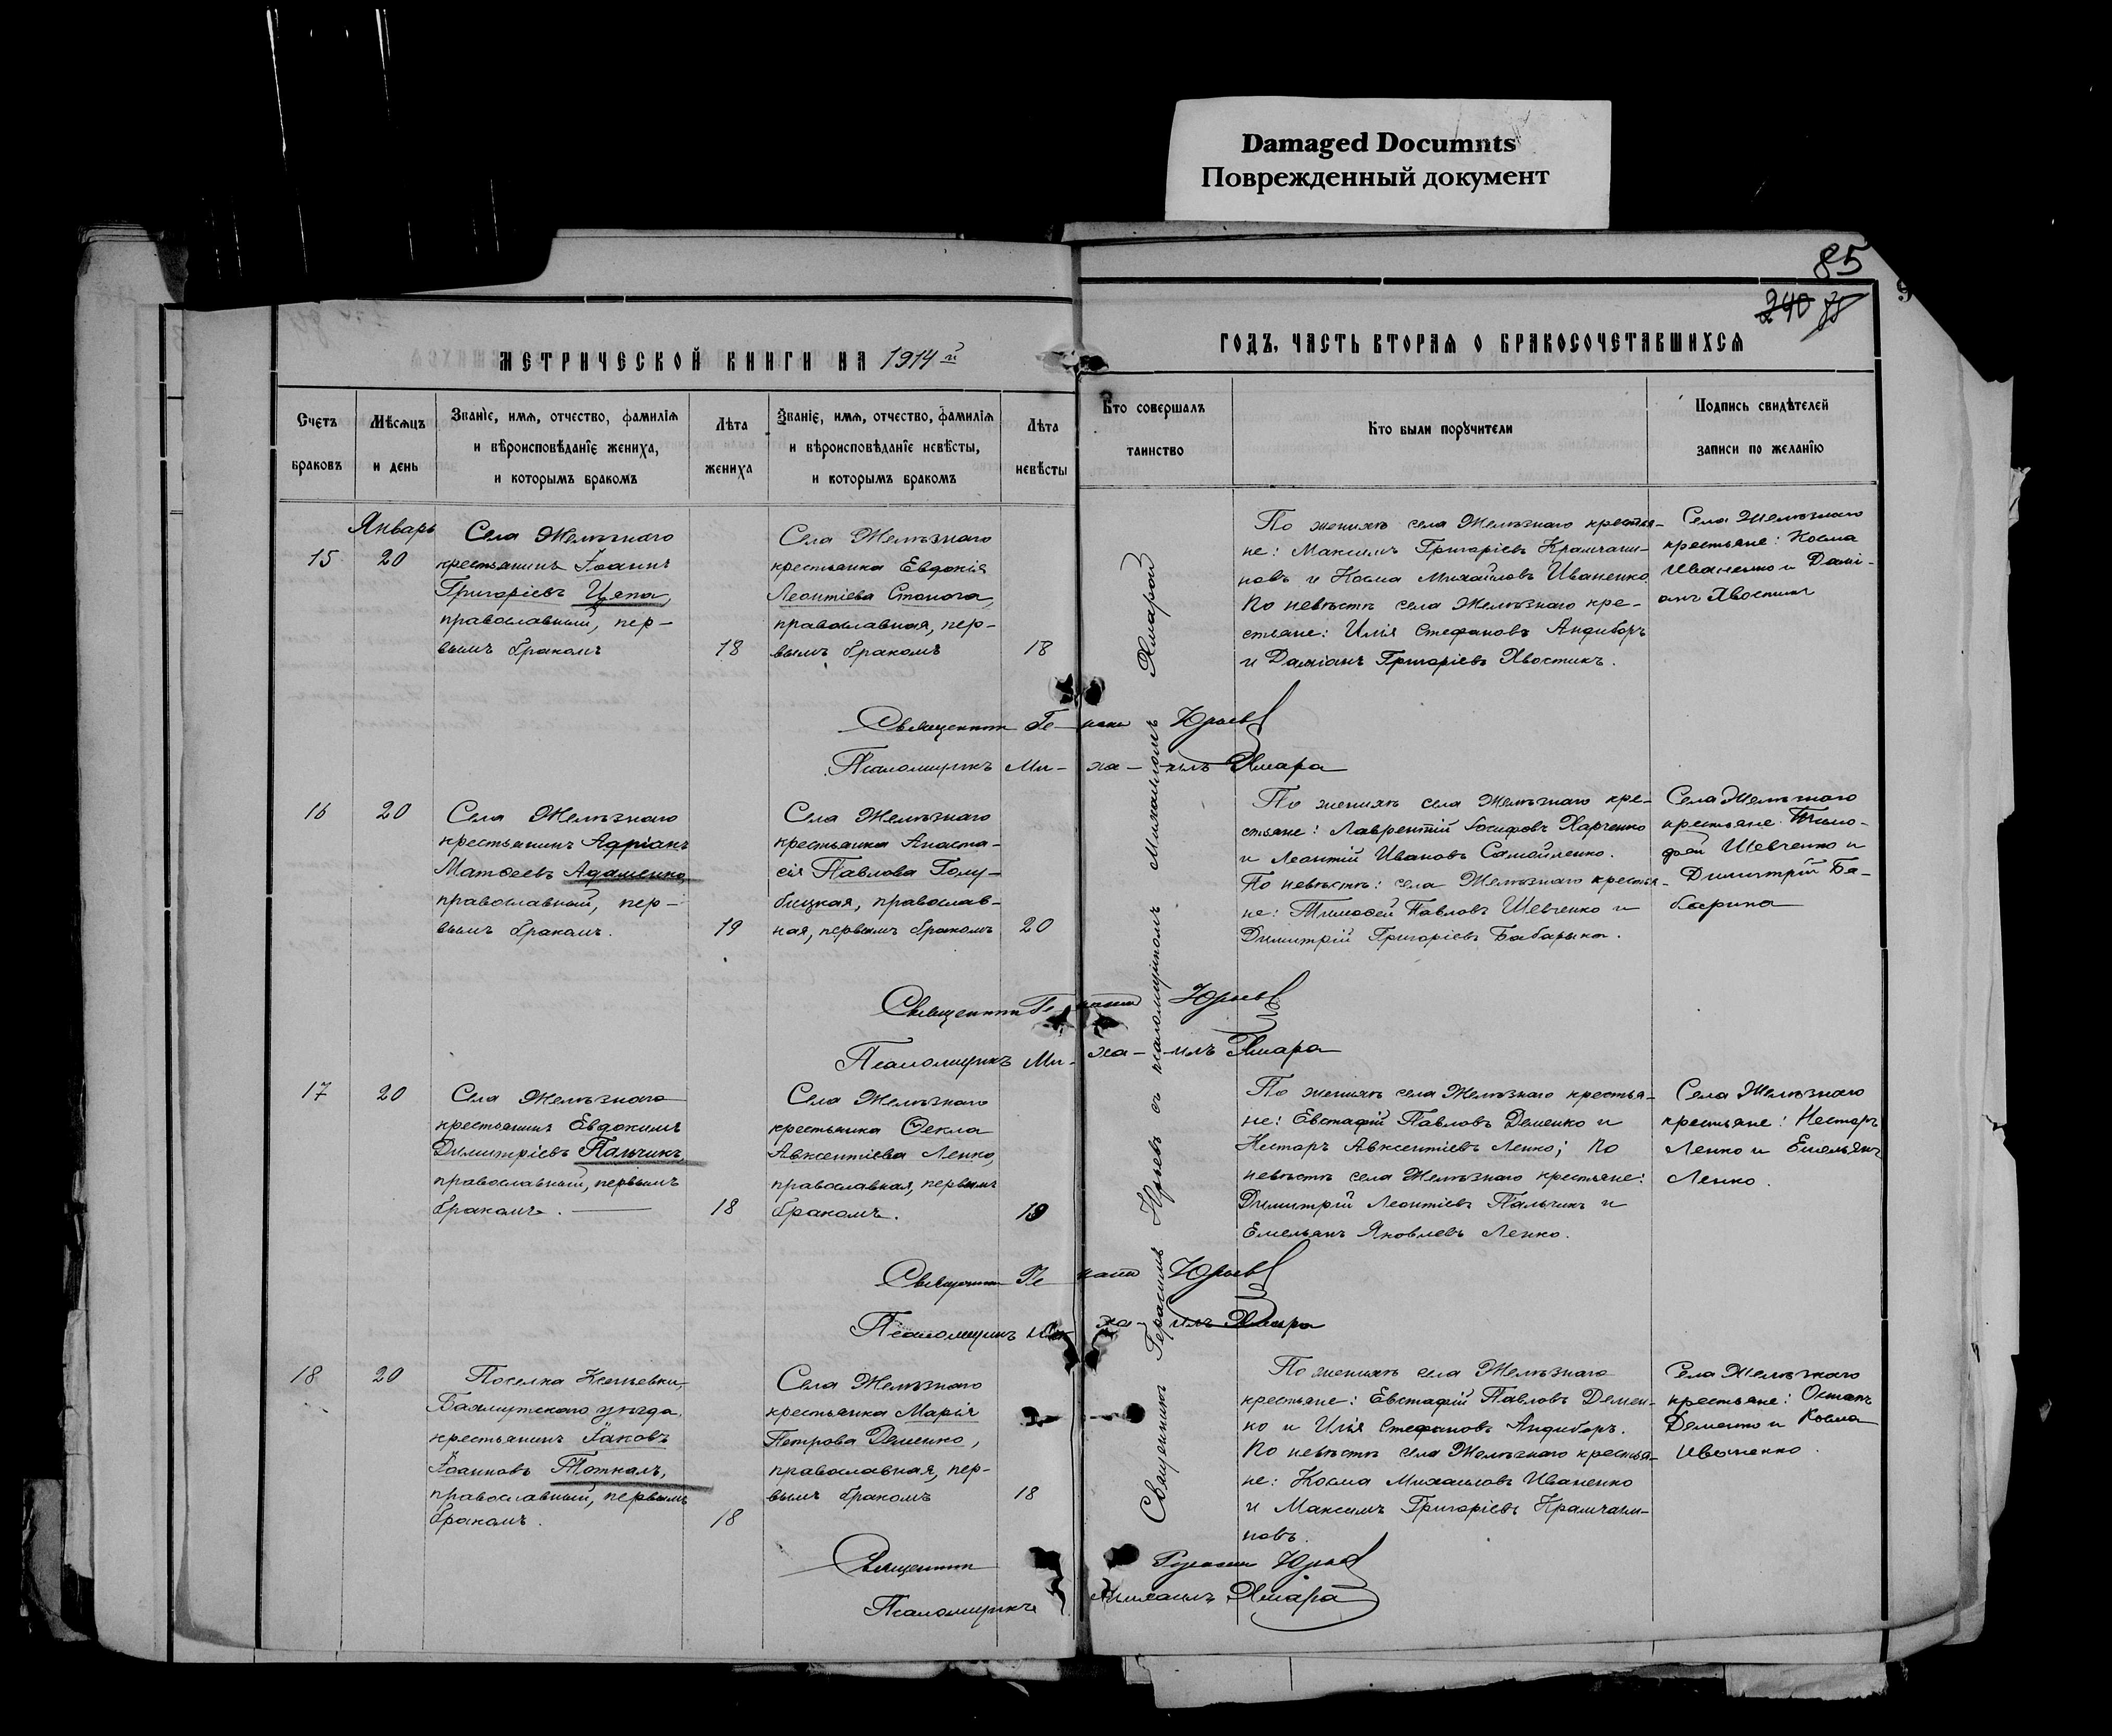 Damaged Documnts
Поврежденный документ
85
240
МЕТРИЧЕСКОЙ КНИГИ НА 1914й
ГОДЪ, ЧАСТЬ ВТОРАЯ О БРАКОСОЧЕТАВШИХСЯ
Счетъ браковъ
Мѣсяцъ и день
Званіе, имя, отчество, фамилія
и вѣроисповѣданіе жениха,
и которымъ бракомъ
Лѣта жениха
Званіе, имя, отчество, фамилія
и вѣроисповѣданіе невѣсты,
и которымъ бракомъ
Лѣта невѣсты
Кто совершалъ
таинство
Кто были поручители
Подпись свидѣтелей
записи по желанію
Январь
15
20
Села Желѣзнаго
крестьянинъ Іоаннъ
Григоріевъ Цепа,
православный, пер-
вымъ бракомъ
18
Села Желѣзнаго
крестьянка Евдокія
Леонтіева Стонога,
православная, пер-
вымъ бракомъ
18
По женихѣ села Желѣзнаго крестья-
не: Максимъ Григоріевъ Крамчани-
новъ и Косма Михайловъ Иваненко
По невѣстѣ села Желѣзнаго кре-
стьяне: Илія Стефановъ Андиборъ
и Даміанъ Григоріевъ Хвостикъ.
Села Желѣзнаго
крестьяне: Косма
Иваненко и Дамі-
анъ Хвостикъ
Священникъ Юрьевъ
Псаломщикъ Ми-ха-илъ Хмара
Священникъ Герасимъ Юрьевъ съ псаломщикомъ Михаиломъ Хмарой
16
20
Села Желѣзнаго
крестьянинъ Адріанъ
Матѳеевъ Адаменко,
православный, пер-
вымъ бракомъ.
19
Села Желѣзнаго
крестьянка Анаста-
сія Павлова Голу-
бицкая, православ-
ная, первымъ бракомъ
20
По женихѣ села Желѣзнаго кре-
стьяне: Лаврентій Іосифовъ Харченко
и Леонтій Ивановъ Самойленко.
По невѣстѣ: села Желѣзнаго крестья-
не: Тимоѳей Павловъ Шевченко и
Димитрій Григоріевъ Бабарыка.
Села Желѣзнаго
крестьяне: Тимо-
ѳей Шевченко и
Димитрій Ба-
барика
Священникъ Юрьевъ
Псаломщикъ Ми-ха-илъ Хмара
17
20
Села Желѣзнаго
крестьянинъ Евдокимъ
Димитріевъ Пальчикъ,
православный, первымъ
бракомъ.
18
Села Желѣзнаго
крестьянка Ѳекла
Авксентіева Лепко,
православная, первымъ
бракомъ.
19
По женихѣ села Желѣзнаго крестья-
не: Евстафій Павловъ Деменко и
Несторъ Авксентіевъ Лепко; По
невѣстѣ села Желѣзнаго крестьяне:
Димитрій Леонтіевъ Пальчикъ и
Емельянъ Яковлевъ Лепко.
Села Желѣзнаго
крестьяне: Несторъ
Лепко и Емельянъ
Лепко.
Священникъ Юрьевъ
Псаломщикъ Ми-ха-илъ Хмара
18
20
Поселка Ксеньевки,
Бахмутскаго уѣзда,
крестьянинъ Іаковъ
Іоанновъ Тоткалъ,
православный, первымъ
бракомъ.
18
Села Желѣзнаго
крестьянка Марія
Петрова Деменко,
православная, пер-
вымъ бракомъ
18
По женихѣ села Желѣзнаго
крестьяне: Евстафій Павловъ Демен-
ко и Илія Стефановъ Андиборъ.
По невѣстѣ села Желѣзнаго крестья-
не: Косма Михаиловъ Иваненко
и Максимъ Григоріевъ Крамчани-
новъ.
Села Желѣзнаго
крестьяне: Остапъ
Деменко и Косма
Иваненко.
Священникъ Герасимъ Юрьевъ
Псаломщикъ Михаилъ Хмара